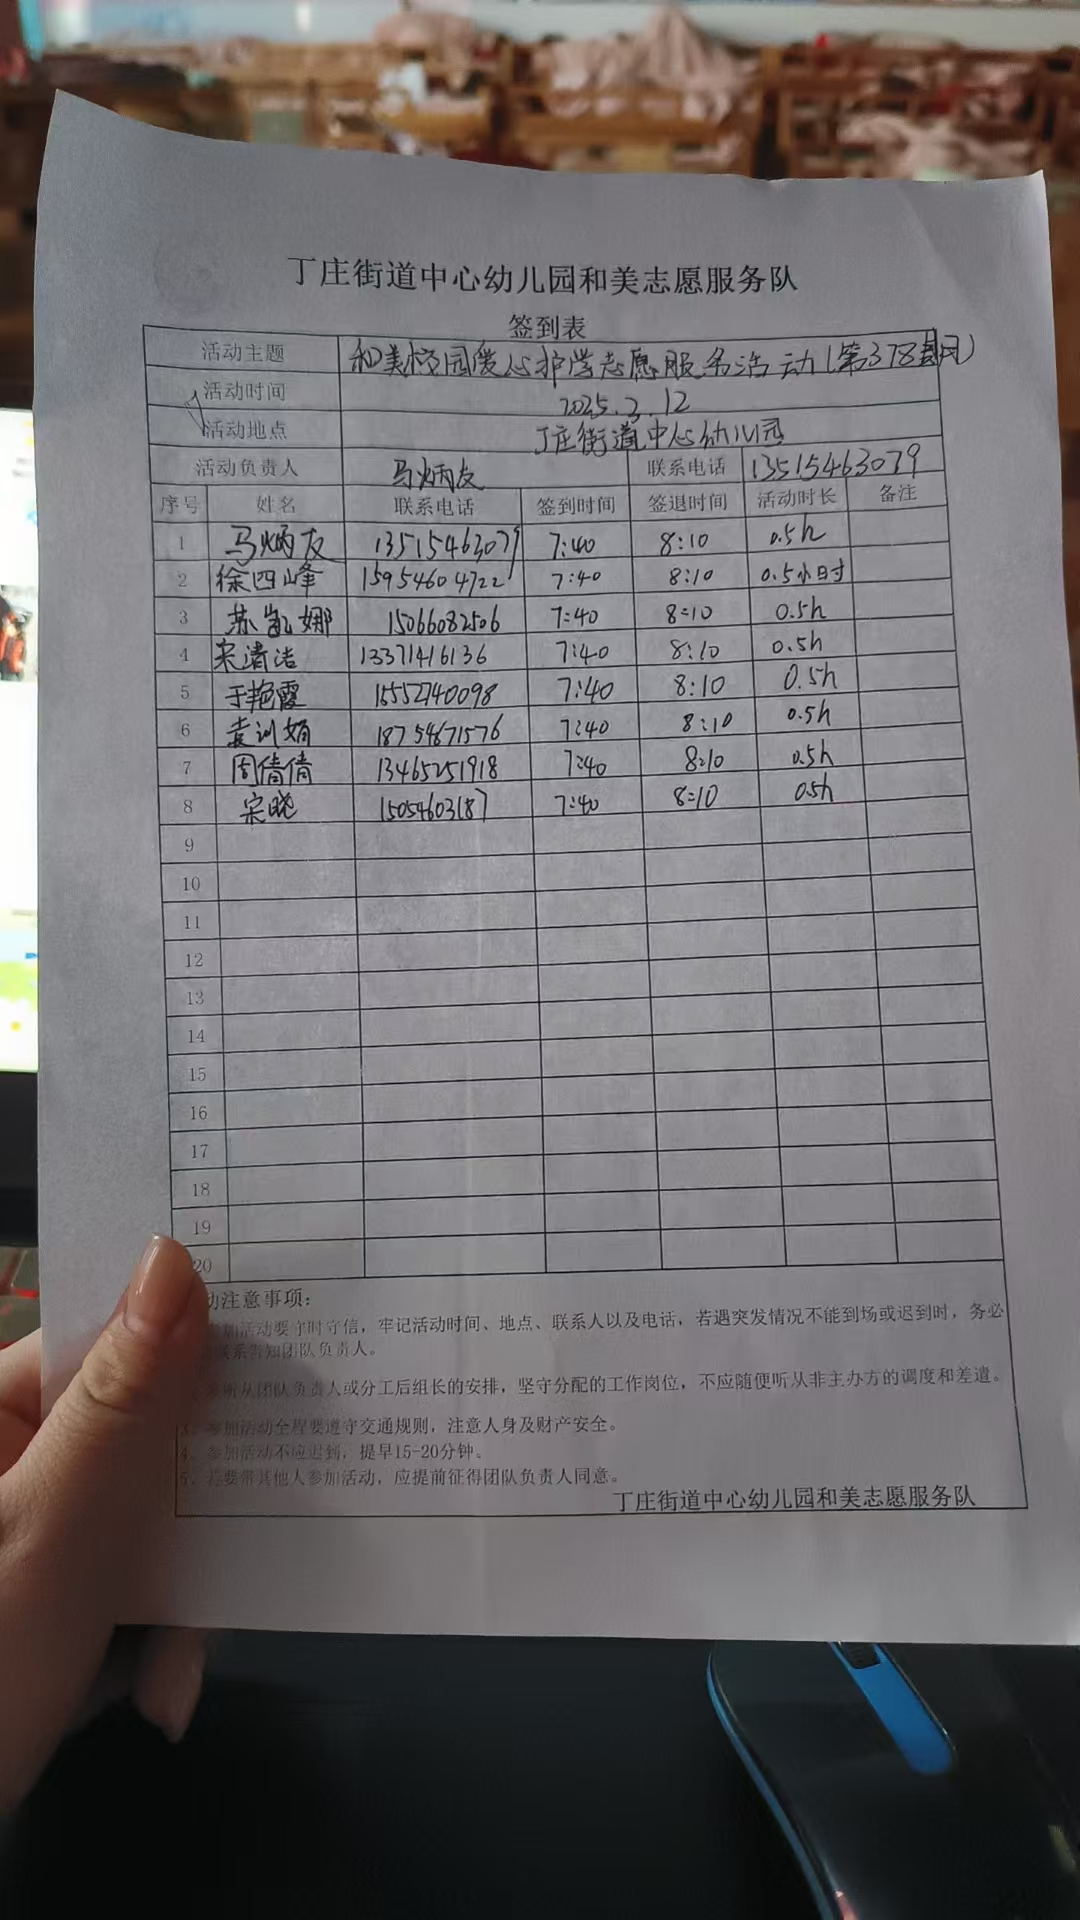 丁庄街道中心幼儿园和美志愿服务队
签到表
活动主题 和美校园爱心护学志愿服务活动(第378期)
活动时间 2025.3.12
活动地点 丁庄街道中心幼儿园
活动负责人 马炳友 联系电话 13515463079
序号 姓名 联系电话 签到时间 签退时间 活动时长 备注
1 马炳友 13515463079 7:40 8:10 0.5h
2 徐四峰 15954604722 7:40 8:10 0.5小时
3 苏凯娜 15066082506 7:40 8:10 0.5h
4 宋清洁 13371416136 7:40 8:10 0.5h
5 于艳霞 15552740098 7:40 8:10 0.5h
6 袁训娟 18754671576 7:40 8:10 0.5h
7 周倩倩 13465251918 7:40 8:10 0.5h
8 宋晓 15054603187 7:40 8:10 0.5h
9
10
11
12
13
14
15
16
17
18
19
20
动注意事项：
参加活动要守时守信，牢记活动时间、地点、联系人以及电话，若遇突发情况不能到场或迟到时，务必
联系告知团队负责人。
听从团队负责人或分工后组长的安排，坚守分配的工作岗位，不应随便听从非主办方的调度和差遣。
3、参加活动全程要遵守交通规则，注意人身及财产安全。
4、参加活动不应迟到，提早15-20分钟。
5、若要带其他人参加活动，应提前征得团队负责人同意。
丁庄街道中心幼儿园和美志愿服务队